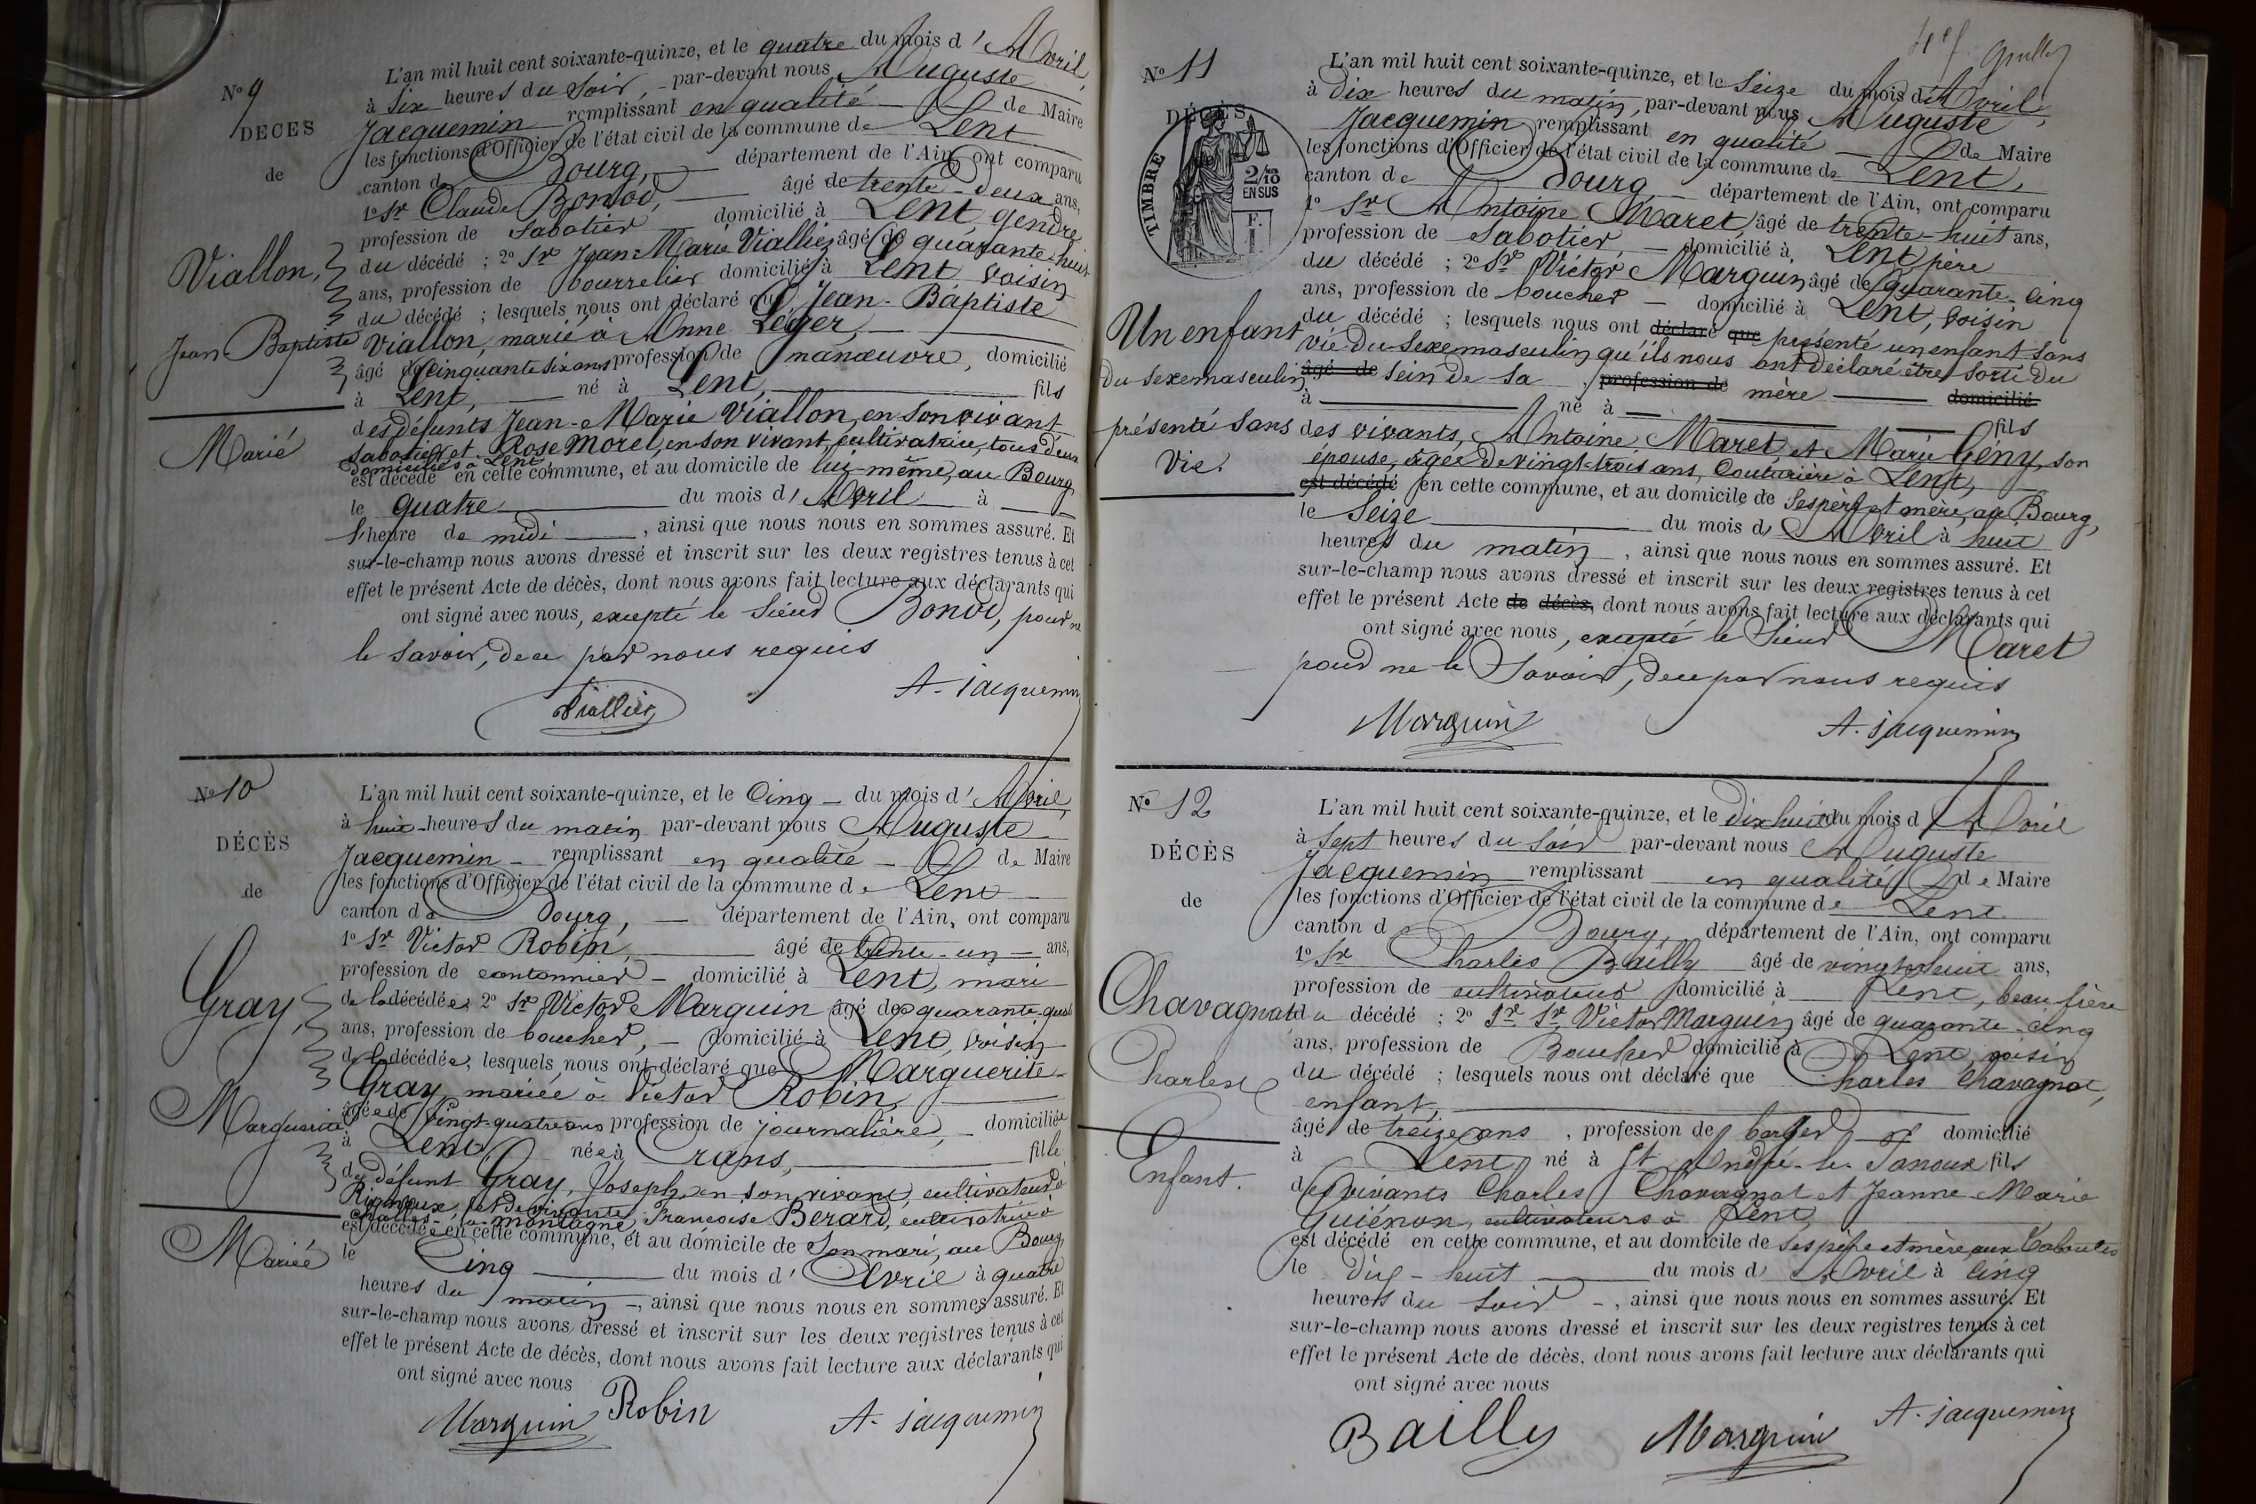 N° 9
DÉCÈS
de
Viallon,
Jean-Baptiste
Marié
L'an mil huit cent soixante-quinze, et le quatre du mois d'Avril,
à six heures du soir, par-devant nous Auguste
Jacquemin remplissant en qualité de Maire
les fonctions d'Officier de l'état civil de la commune de Lent
canton de Bourg, département de l'Ain, ont comparu
1° Sr Claude Bonod, âgé de trente-deux ans,
profession de sabotier domicilié à Lent, gendre
du décédé ; 2° Sr Jean-Marie Viallier âgé de quarante-huit
ans, profession de bourrelier domicilié à Lent, voisin
du décédé ; lesquels nous ont déclaré que Jean-Baptiste
Viallon, marié à Anne Léger,
âgé de cinquante six ans profession de manœuvre, domicilié
à Lent, né à Lent, fils
des défunts Jean-Marie Viallon, en son vivant
sabotier et Rose Morel, en son vivant, cultivatrice, tous deux
domiciliés à Lent,
est décédé en cette commune, et au domicile de lui-même, au Bourg
le quatre du mois d'Avril à
l'heure de midi, ainsi que nous nous en sommes assuré. Et
sur-le-champ nous avons dressé et inscrit sur les deux registres tenus à cet
effet le présent Acte de décès, dont nous avons fait lecture aux déclarants qui
ont signé avec nous, excepté le sieur Bonod, pour ne
le savoir, de ce par nous requis
Viallier
A. Jacquemin
N° 10
DÉCÈS
de
Gray,
Marguerite
Mariée
L'an mil huit cent soixante-quinze, et le Cinq du mois d'Avril,
à huit heures du matin par-devant nous Auguste
Jacquemin remplissant en qualité de Maire
les fonctions d'Officier de l'état civil de la commune de Lent
canton de Bourg, département de l'Ain, ont comparu
1° Sr Victor Robin, âgé de trente-un ans,
profession de cantonnier domicilié à Lent, mari
de la décédée ; 2° Sr Victor Marquin âgé de quarante-quatre
ans, profession de boucher, domicilié à Lent, voisin
de la décédée, lesquels nous ont déclaré que Marguerite
Gray, mariée à Victor Robin,
âgée de vingt-quatre ans profession de journalière, domiciliée
à Lent, née à Crans, fille
du défunt Gray, Joseph, en son vivant, cultivateur à
Rignieux, et de vivante, Françoise Berard, cultivatrice à
Chatillon-la-montagne,
est décédée en cette commune, et au domicile de son mari, au Bourg
le Cinq du mois d'Avril à quatre
heures du matin, ainsi que nous nous en sommes assuré. Et
sur-le-champ nous avons dressé et inscrit sur les deux registres tenus à cet
effet le présent Acte de décès, dont nous avons fait lecture aux déclarants qui
ont signé avec nous
Marquin Robin A. Jacquemin
N° 11
DÉCÈS
TIMBRE
2/10
EN SUS
Un enfant
du sexe masculin
présenté sans
vie.
L'an mil huit cent soixante-quinze, et le seize du mois d'Avril,
à dix heures du matin, par-devant nous Auguste
Jacquemin remplissant en qualité de Maire
les fonctions d'Officier de l'état civil de la commune de Lent,
canton de Bourg département de l'Ain, ont comparu
1° Sr Antoine Maret, âgé de trente-huit ans,
profession de sabotier, domicilié à Lent, père
du décédé ; 2° Sr Victor Marquin âgé de quarante-cinq
ans, profession de boucher domicilié à Lent, voisin
du décédé ; lesquels nous ont déclaré que présenté un enfant sans
vie du sexe masculin qu'ils nous ont déclaré être sorti du
âgé de sein de sa, profession de mère domicilié
à né à fils
des vivants, Antoine Maret, et Marie Gény, son
épouse, âgée de vingt-trois ans, Couturière à Lent,
est décédé en cette commune, et au domicile de ses père et mère, au Bourg,
le seize du mois d'Avril à huit
heures du matin, ainsi que nous nous en sommes assuré. Et
sur-le-champ nous avons dressé et inscrit sur les deux registres tenus à cet
effet le présent Acte de décès, dont nous avons fait lecture aux déclarants qui
ont signé avec nous, excepté le Sieur Maret
pour ne le Savoir, de ce par nous requis
Marquin
A. Jacquemin
N° 12
DÉCÈS
de
Chavagnat
Charles
Enfant.
L'an mil huit cent soixante-quinze, et le dix huit du mois d'Avril
à sept heures du soir par-devant nous Auguste
Jacquemin remplissant en qualité de Maire
les fonctions d'Officier de l'état civil de la commune de Lent
canton de Bourg, département de l'Ain, ont comparu
1° Sr Charles Bailly âgé de vingt-huit ans,
profession de cultivateur domicilié à Lent, beau frère
du décédé ; 2° Sr Sr Victor Marquin âgé de quarante-cinq
ans, profession de Boucher domicilié à Lent, voisin
du décédé ; lesquels nous ont déclaré que Charles Chavagnat,
enfant,
âgé de treize ans, profession de berger domicilié
à Lent, né à St André-le-Panoux fils
des vivants Charles Chavagnat et Jeanne-Marie
Guiénon, cultivateurs à Lent,
est décédé en cette commune, et au domicile de ses père et mère, aux
le dix-huit du mois d'Avril à cinq
heures du soir, ainsi que nous nous en sommes assuré. Et
sur-le-champ nous avons dressé et inscrit sur les deux registres tenus à cet
effet le présent Acte de décès, dont nous avons fait lecture aux déclarants qui
ont signé avec nous
Bailly Marquin A. Jacquemin